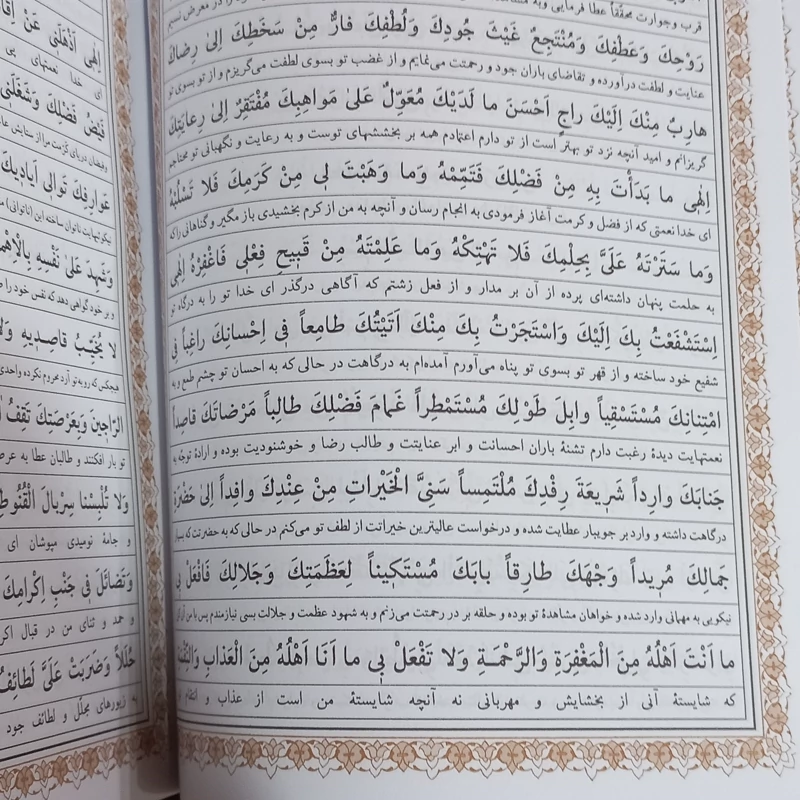 قرب وجوارت محققاً عطا فرمایی وبه
رَوْحِكَ وَعَطْفِكَ وَمُنْتَجِعٌ غَيْثَ جُودِكَ وَلُطْفِكَ فارٌّ مِنْ سَخَطِكَ اِلىٰ رِضاكَ
عنایت و لطفت درآورده و تقاضای باران جود و رحمتت می‌نمایم و از غضب تو بسوی لطفت می‌گریزم و از تو بسوی تو
هارِبٌ مِنْكَ اِلَيْكَ راجٍ اَحْسَنَ ما لَدَيْكَ مُعَوِّلٌ عَلىٰ مَواهِبِكَ مُفْتَقِرٌ اِلىٰ رِعايَتِكَ
گریزانم و امید آنچه نزد تو بهتر است از تو دارم اعتمادم همه بر بخششهای توست و به رعایت و نگهبانی تو محتاجم
اِلٰهى ما بَدَأْتَ بِهِ مِنْ فَضْلِكَ فَتَمِّمْهُ وَما وَهَبْتَ لى مِنْ كَرَمِكَ فَلا تَسْلُبْهُ
ای خدا نعمتی که از فضل و کرمت آغاز فرمودی به انجام رسان و آنچه به من از کرم بخشیدی باز مگیر و گناهانی را که
وَما سَتَرْتَهُ عَلَىَّ بِحِلْمِكَ فَلا تَهْتِكْهُ وَما عَلِمْتَهُ مِنْ قَبيحِ فِعْلى فَاغْفِرْهُ اِلٰهى
به حلمت پنهان داشته‌ای پرده از آن بر مدار و از فعل زشتم که آگاهی درگذر ای خدا تو را به درگاه تو
اِسْتَشْفَعْتُ بِكَ اِلَيْكَ وَاسْتَجَرْتُ بِكَ مِنْكَ اَتَيْتُكَ طامِعاً فى اِحْسانِكَ راغِباً فِى
شفیع خود ساخته و از قهر تو بسوی تو پناه می‌آورم آمده‌ام به درگاهت در حالی که به احسان تو چشم طمع و به
امْتِنانِكَ مُسْتَسْقِياً وابِلَ طَوْلِكَ مُسْتَمْطِراً غَمامَ فَضْلِكَ طالِباً مَرْضاتَكَ قاصِداً
نعمتهایت دیدهٔ رغبت دارم تشنهٔ باران احسانت و ابر عنایتت و طالب رضا و خوشنودیت بوده و ارادهٔ توجّه به
جَنابَكَ وارِداً شَريعَةَ رِفْدِكَ مُلْتَمِساً سَنِىَّ الْخَيْراتِ مِنْ عِنْدِكَ وافِداً اِلىٰ حَضْرَةِ
درگاهت داشته و وارد بر جویبار عطایت شده و درخواست عالیترین خیراتت از لطف تو می‌کنم در حالی که به حضرتت که
جَمالِكَ مُريداً وَجْهَكَ طارِقاً بابَكَ مُسْتَكيناً لِعَظَمَتِكَ وَجَلالِكَ فَافْعَلْ بى
نیکویی به مهمانی وارد شده و خواهان مشاهدهٔ تو بوده و حلقه بر در رحمتت می‌زنم و به شهود عظمت و جلالت بسی نیازمندم پس با من آن
ما اَنْتَ اَهْلُهُ مِنَ الْمَغْفِرَةِ وَالرَّحْمَـةِ وَلا تَفْعَلْ بى ما اَنَا اَهْلُهُ مِنَ الْعَذابِ وَالنِّقْمَةِ
که شایستهٔ آنی از بخشایش و مهربانی نه آنچه شایستهٔ من است از عذاب و انتقام
اِلٰهى اَذْهَلَنى عَنْ
ای خدا نعمتهای پی
فَيْضُ فَضْلِكَ وَشَغَلَنى
عَوارِفِكَ تَوالى اَياديكَ
نیکوئیهایت ناتوان ساخته این
وَشَهِدَ عَلىٰ نَفْسِهِ بِالْاِهْمالِ
و بر خود گواهی دهد که نفس خود را
لا يُخَيِّبُ قاصِـديهِ وَلا
هیچکس که رو به تو آرد محروم نکرده
الرّاجينَ وَبِعَرْصَتِكَ تَقِفُ
تو بار افکنند و طالبان عطا به
وَلا تُلْبِسْنا سِرْبالَ الْقُنُوطِ
و جامهٔ نومیدی مپوشان ای
وَتَضائَلَ فى جَنْبِ اِكْرامِكَ
و حمد و ثنای من در قبال
حُلَلاً وَضَرَبَتْ عَلَىَّ لَطائِفُ
به زیورهای مجلّل و لطائف جود